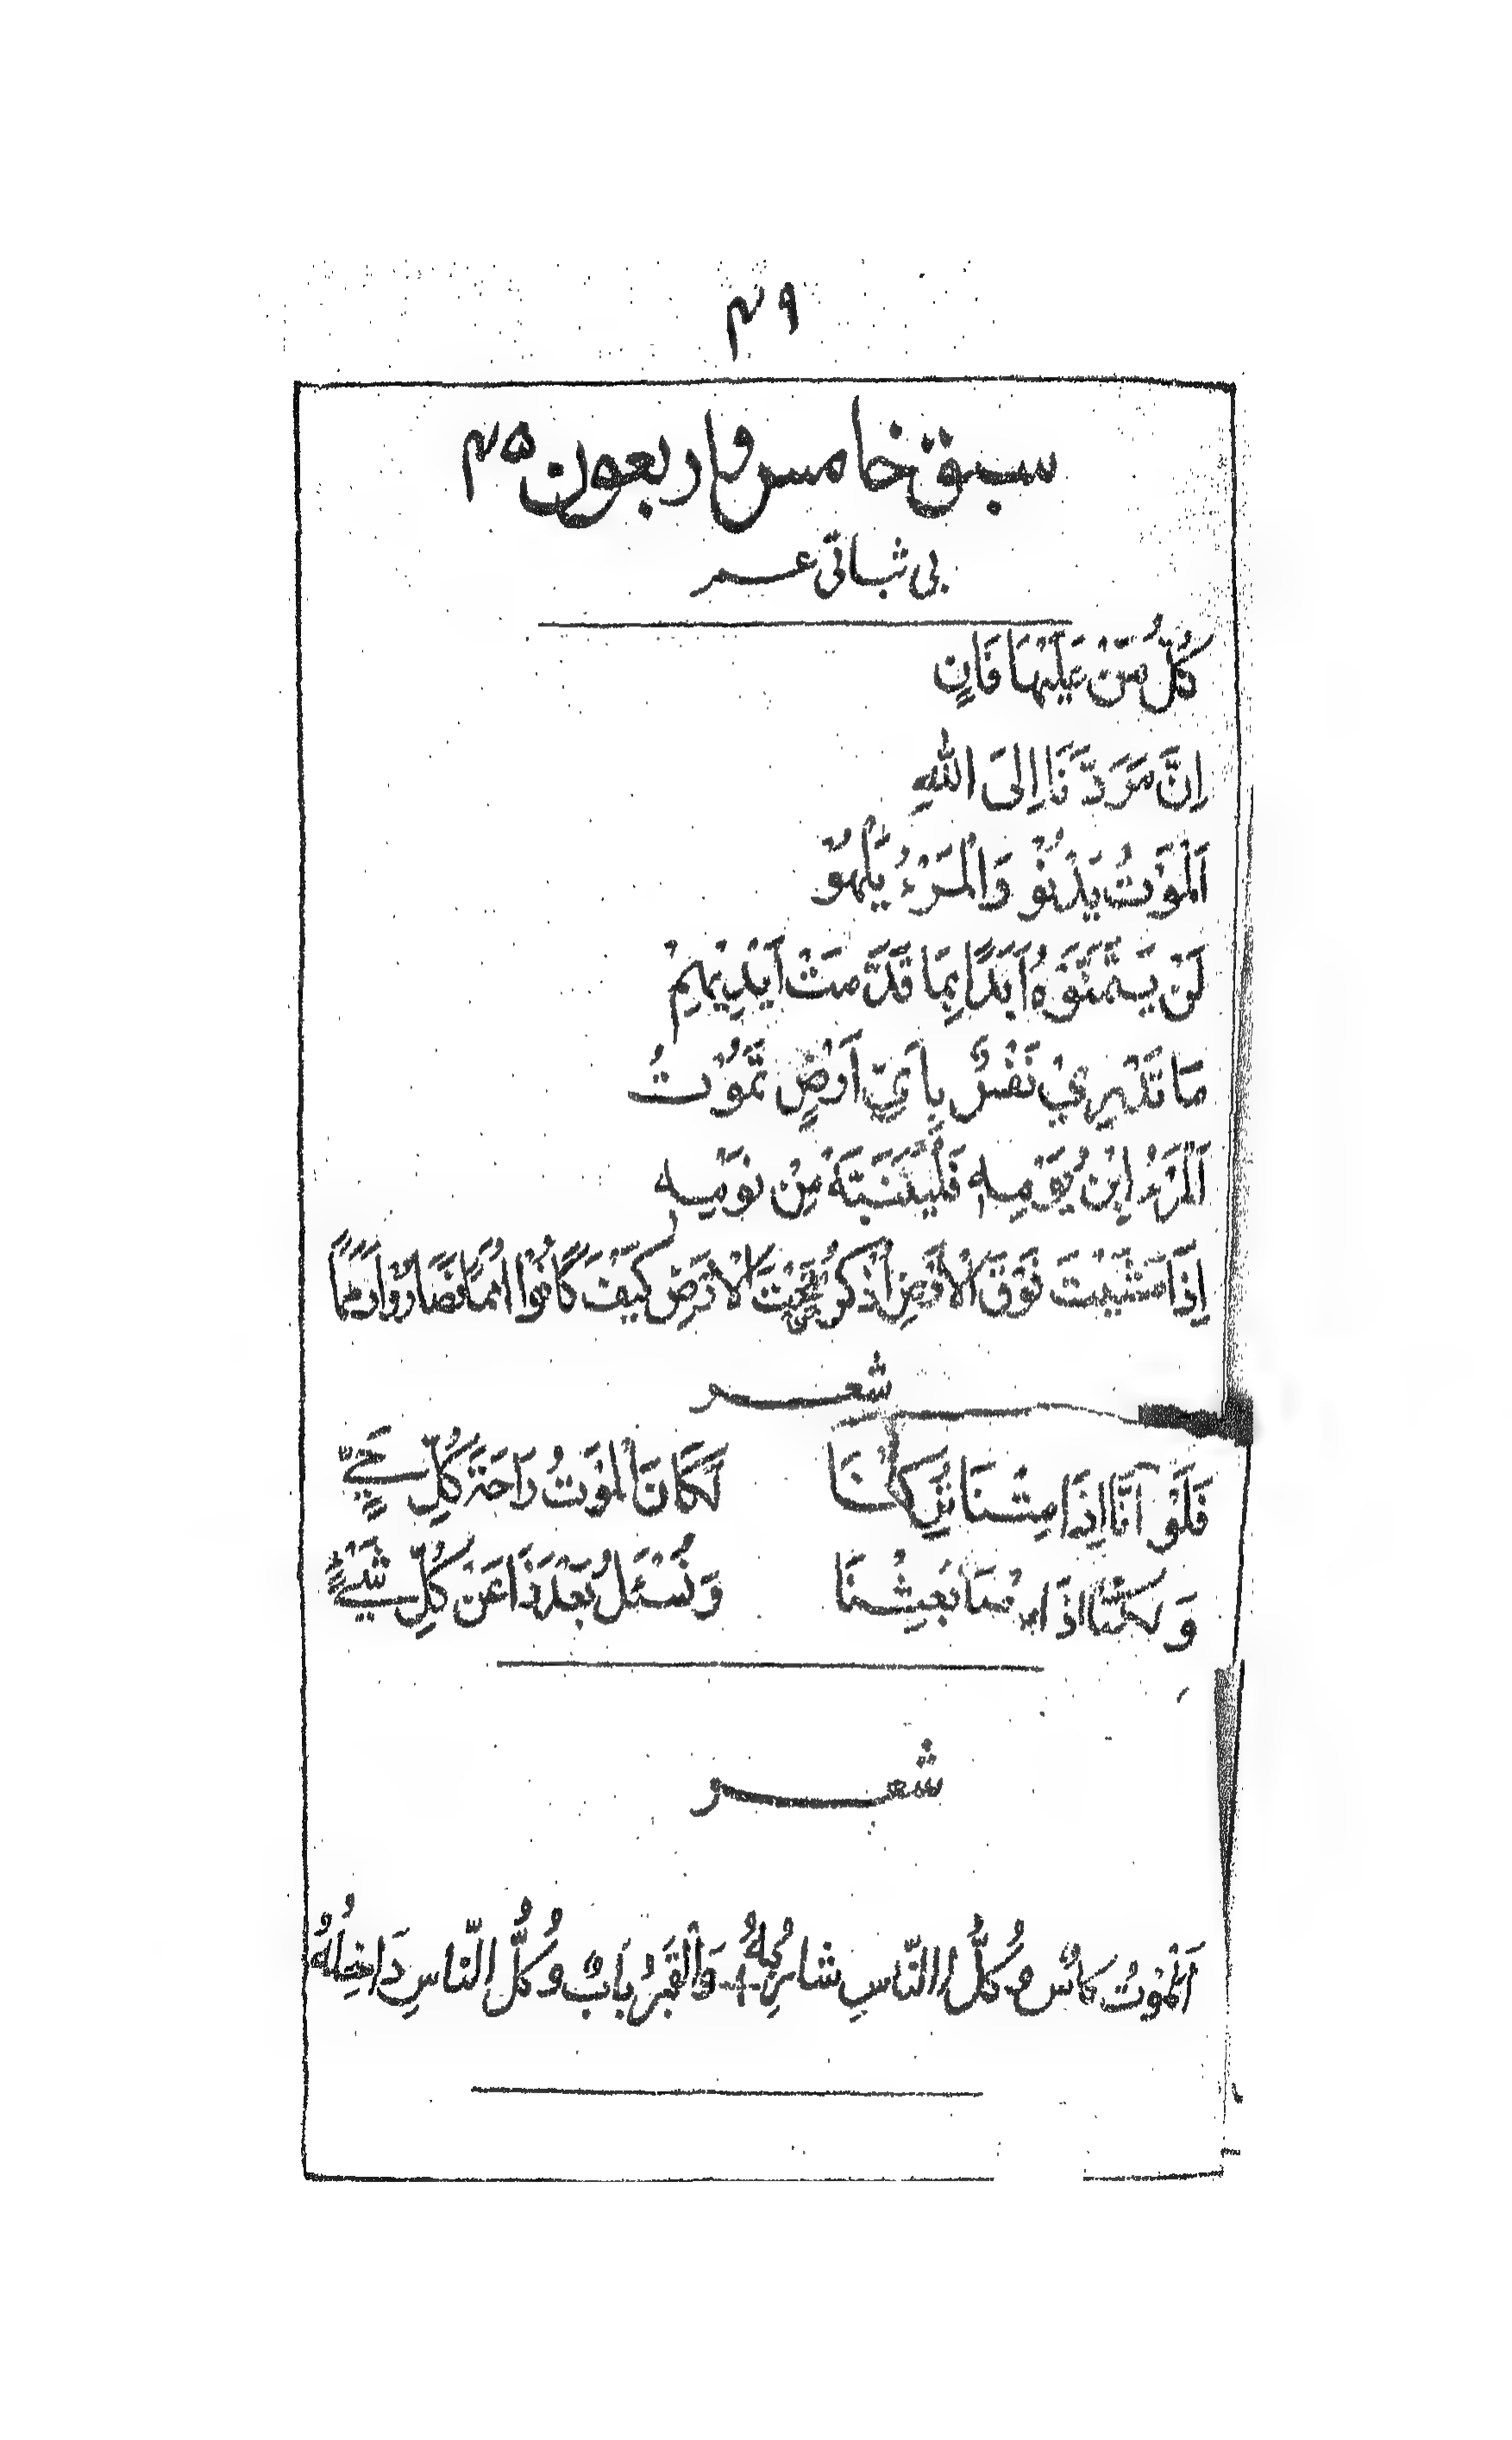 ۴۹
سبق خامس و اربعون ۴۵
بی ثباتی عمر
كُلُّ مَنْ عَلَيْهَا فَانٍ
اِنَّ مَرَدَّنَا اِلَى اللّٰهِ
اَلْمَوْتُ يَدْنُوْ وَالْمَرْءُ يَلْهُوْ
لَنْ يَتَمَنَّوْهُ اَبَدًا بِمَا قَدَّمَتْ اَيْدِيْهِمْ
مَا تَدْرِيْ نَفْسٌ بِاَيِّ اَرْضٍ تَمُوْتُ
اَلْمَرْءُ اِبْنُ يَوْمِهٖ فَلْيَتَنَبَّهْ مِنْ نَوْمِهٖ
اِذَا مَشَيْتَ فَوْقَ الْاَرْضِ اُذْكُرْ تَحْتَ الْاَرْضِ كَيْفَ كَانُوْا اُمَمًا فَصَارُوْا
شعر
فَلَوْ اَنَّا اِذَا مِتْنَا تُرِكْنَا لَكَانَ الْمَوْتُ رَاحَةَ كُلِّ حَيٍّ
وَلٰكِنَّا اِذَا مِتْنَا بُعِثْنَا وَنُسْئَلُ بَعْدَ ذَا عَنْ كُلِّ شَيْءٍ
شعر
اَلْمَوْتُ كَاْسٌ وَكُلُّ النَّاسِ شَارِبُهٗ وَالْقَبْرُ بَابٌ وَكُلُّ النَّاسِ دَاخِلُهٗ